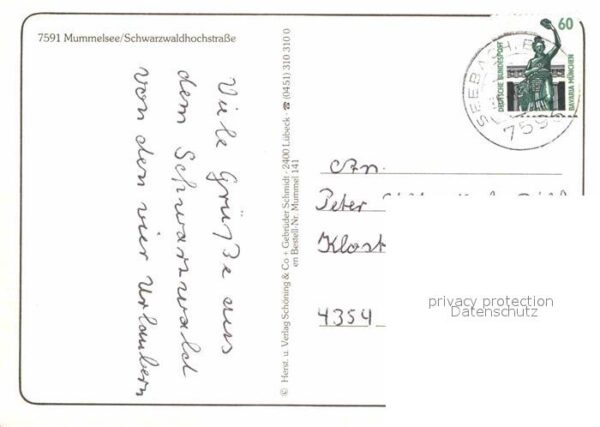 7591 Mummelsee/Schwarzwaldhochstraße
Viele Grüße aus
dem Schwarzwald
von den vier Urlaubern
© Herst. u. Verlag Schöning & Co + Gebrüder Schmidt · 2400 Lübeck · ☎ (0451) 310 310 0
en Bestell-Nr. Mummel 141
60
DEUTSCHE BUNDESPOST
BAVARIA MÜNCHEN
SEEBACH
759
An
Peter
Klost
4354
privacy protection
Datenschutz